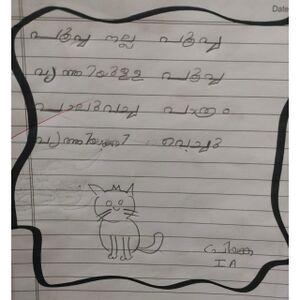 Date
പൂച്ച നല്ല പൂച്ച
വൃത്തിയുള്ള പൂച്ച
പാലുവച്ച പാത്രം
വൃത്തിയാക്കി വെച്ചു
I A